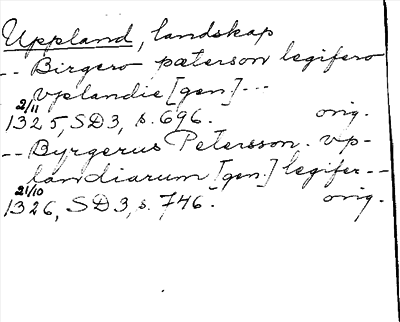 Uppland, landskap
-- Birgero pæterson legifero
vplandie [gen] ---
2/11
1325, SD3, s. 696. orig.
-- Byrgerus Petersson. vp-
landiarum [gen.] legifer --
21/10
1326, SD3, s. 746. orig.